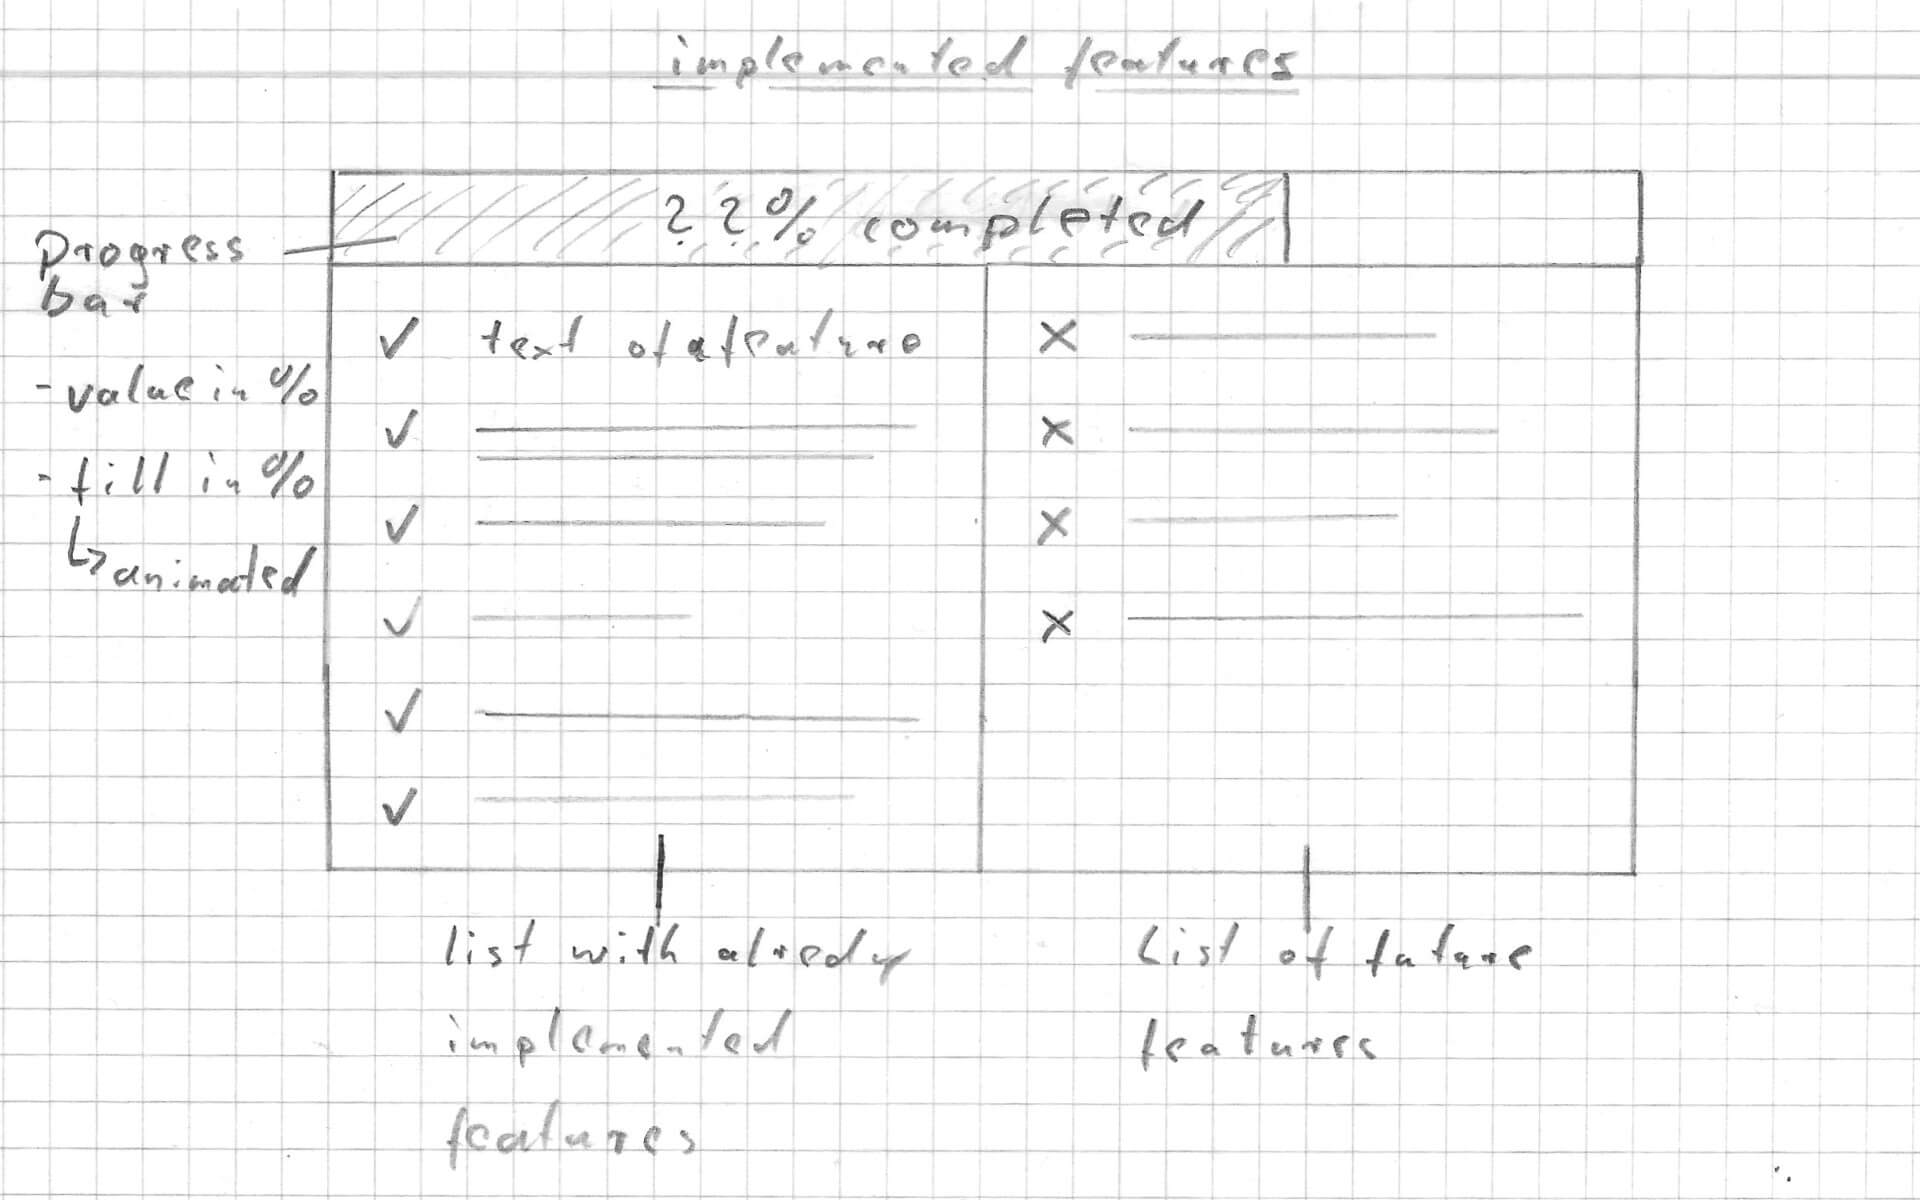 implemented features
??% completed
Progress
bar
- value in %
- fill in %
↳ animated
✓ text of a feature
✓
✓
✓
✓
✓
x
x
x
x
list with alredy
implemented
features
List of future
features